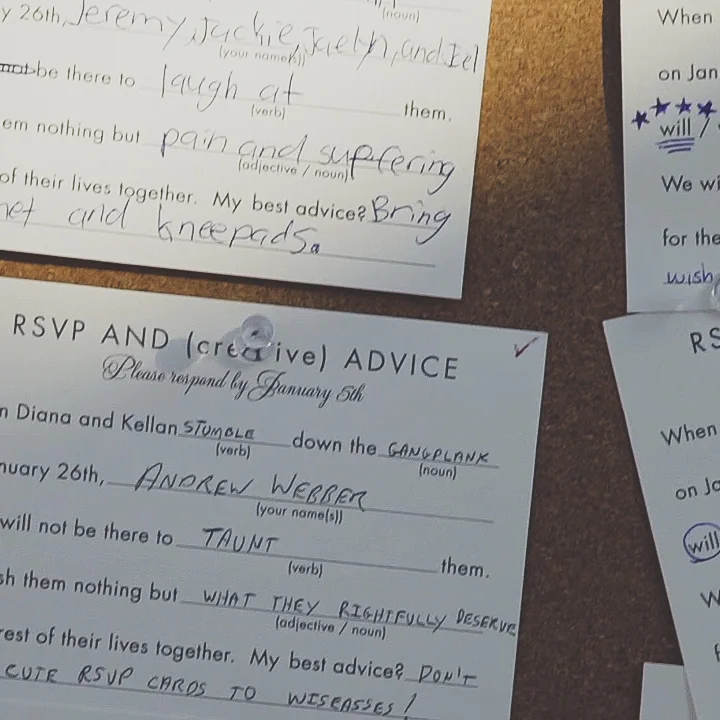 (noun)
y 26th, Jeremy, Jackie, Jaelyn, and
(your name(s))
not be there to laugh at them.
(verb)
em nothing but pain and suffering
(adjective / noun)
of their lives together. My best advice? Bring
and kneepads.
RSVP AND (creative) ADVICE
Please respond by January 5th
n Diana and Kellan STUMBLE down the GANGPLANK
(verb)
(noun)
nuary 26th, ANDREW WEBBER
(your name(s))
will not be there to TAUNT them.
(verb)
sh them nothing but WHAT THEY RIGHTFULLY DESERVE
(adjective / noun)
rest of their lives together. My best advice? DON'T
CUTE RSVP CARDS TO WISEASSES!
When
on Jan
will /
We wi
for the
wish
RS
When
on Ja
will
W